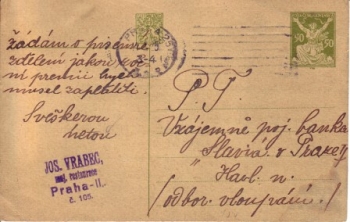 žádám o písemné
sdělení jakou
premii bych
musel zaplatiti.
S veškerou
úctou
JOS. VRABEC,
maj. restaurace
Praha-II.
č. 105.
50 50
P. T.
Vzájemné poj. banka
"Slavia" v Praze II
Havl. n.
/odbor. vloupání./